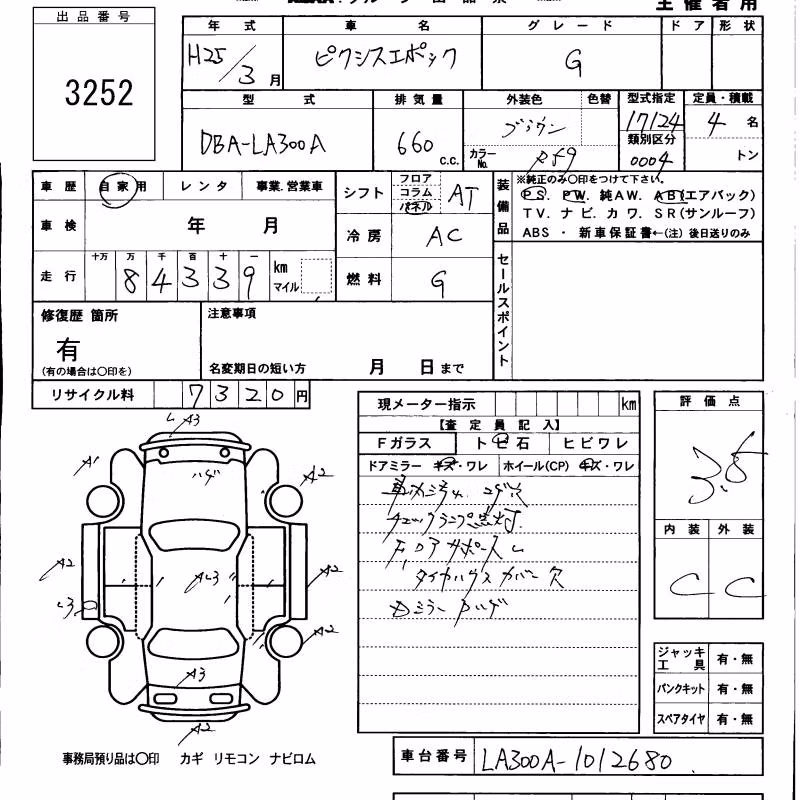 主催者用
出品番号
3252
年式 車名 グレード ドア 形状
H25/3月 ピクシスエポック G
型式 排気量 外装色 色替 型式指定 定員・積載
DBA-LA300A 660 c.c. ブラウン 17124 4名
カラーNo. R59 類別区分 0004 トン
車歴 自家用 レンタ 事業.営業車
シフト フロア コラム パネル AT
装備品 ※純正のみ〇印をつけて下さい。
PS. PW. 純AW. ABI(エアバック)
TV. ナビ. カワ. SR(サンルーフ)
ABS ・ 新車保証書←(注) 後日送りのみ
車検 年 月
冷房 AC
走行 十万 万 千 百 十 一
84339 km マイル
燃料 G
セールスポイント
修復歴 箇所 注意事項
有
(有の場合は〇印を) 名変期日の短い方 月 日まで
リサイクル料 7320円
現メーター指示 km
【査定員記入】
Fガラス トビ石 ヒビワレ
ドアミラー キズ・ワレ ホイール(CP) キズ・ワレ
車内汚れ コゲ穴
チェックランプ点灯.
タイヤハウス カバー 欠
評価点
3.5
内装 外装
C C
A3
A1 ハゲ A2
A2 A2
A2
A3
A2
ジャッキ工具 有・無
パンクキット 有・無
スペアタイヤ 有・無
事務局預り品は〇印 カギ リモコン ナビロム
車台番号 LA300A-1012680